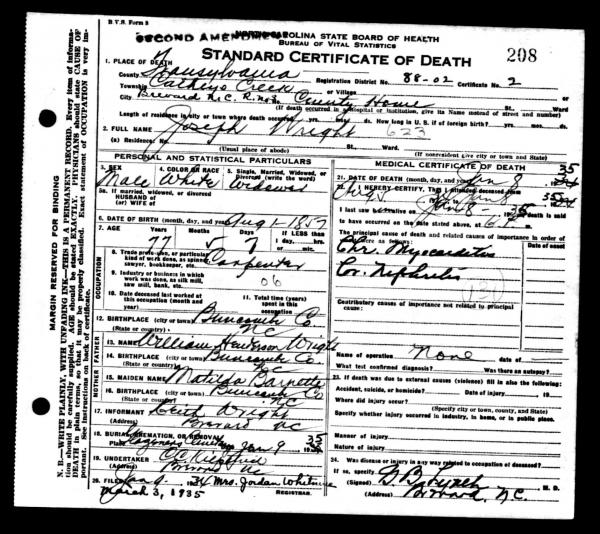 B.V.S. Form 8
SECOND AMENDMENT
NORTH CAROLINA STATE BOARD OF HEALTH
BUREAU OF VITAL STATISTICS
STANDARD CERTIFICATE OF DEATH 208
1. PLACE OF DEATH
County Transylvania Registration District No. 88-02 Certificate No. 2
Township Catheys Creek or Village
City Brevard N.C. R. No. County Home St., Ward
(If death occurred in a hospital or institution, give its Name instead of street and number)
Length of residence in city or town where death occurred yrs. mos. ds. How long in U. S. if of foreign birth? yrs. mos. ds.
2. FULL NAME Joseph Wright 623
(a) Residence: No. St., Ward.
(Usual place of abode) (If nonresident give city or town and State)
PERSONAL AND STATISTICAL PARTICULARS
3. SEX Male
4. COLOR OR RACE White
5. Single, Married, Widowed, or Divorced (write the word) Widower
5a. If married, widowed, or divorced
HUSBAND of
(or) WIFE of
6. DATE OF BIRTH (month, day, and year) Aug 1-1857
7. AGE Years Months Days If LESS than
77 5 7 1 day, hrs.
or min.
OCCUPATION
8. Trade, profession, or particular kind of work done, as spinner, sawyer, bookkeeper, etc. Carpenter
9. Industry or business in which work was done, as silk mill, saw mill, bank, etc. 06
10. Date deceased last worked at this occupation (month and year)
11. Total time (years) spent in this occupation
12. BIRTHPLACE (city or town) Buncomb Co.
(State or country) NC
FATHER
13. NAME William Wright
14. BIRTHPLACE (city or town) Buncomb Co.
(State or country) NC
MOTHER
15. MAIDEN NAME Matilda Barnette
16. BIRTHPLACE (city or town) Buncomb Co
(State or country) NC
17. INFORMANT Wright
(Address) Brevard NC
18. BURIAL, CREMATION, OR REMOVAL
Place Date Jan 9 1935
19. UNDERTAKER
(Address) Brevard NC
20. FILED Jan 9 34 Mrs. Jordan Whitmire
REGISTRAR.
March 3, 1935
MEDICAL CERTIFICATE OF DEATH
21. DATE OF DEATH (month, day, and year) Jan 9 35
22. I HEREBY CERTIFY, That I attended deceased from
I last saw alive on Jan 8- 1935 death is said
to have occurred on the date stated above, at 6 P.m.
The principal cause of death and related causes of importance in order of onset were as follows: Date of onset
Chr. Myocarditis
Cr. Nephritis
131
Contributory causes of importance not related to principal cause:
Name of operation None date of
What test confirmed diagnosis? Was there an autopsy?
23. If death was due to external causes (violence) fill in also the following:
Accident, suicide, or homicide? Date of injury , 19
Where did injury occur?
(Specify city or town, county, and State)
Specify whether injury occurred in industry, in home, or in public place.
Manner of injury
Nature of injury
24. Was disease or injury in any way related to occupation of deceased?
If so, specify
(Signed) G. B. Lynch M. D.
(Address) Brevard, N.C.
MARGIN RESERVED FOR BINDING
N. B.—WRITE PLAINLY, WITH UNFADING INK—THIS IS A PERMANENT RECORD. Every item of information should be carefully supplied. AGE should be stated EXACTLY. PHYSICIANS should state CAUSE OF DEATH in plain terms, so that it may be properly classified. Exact statement of OCCUPATION is very important. See instructions on back of certificate.